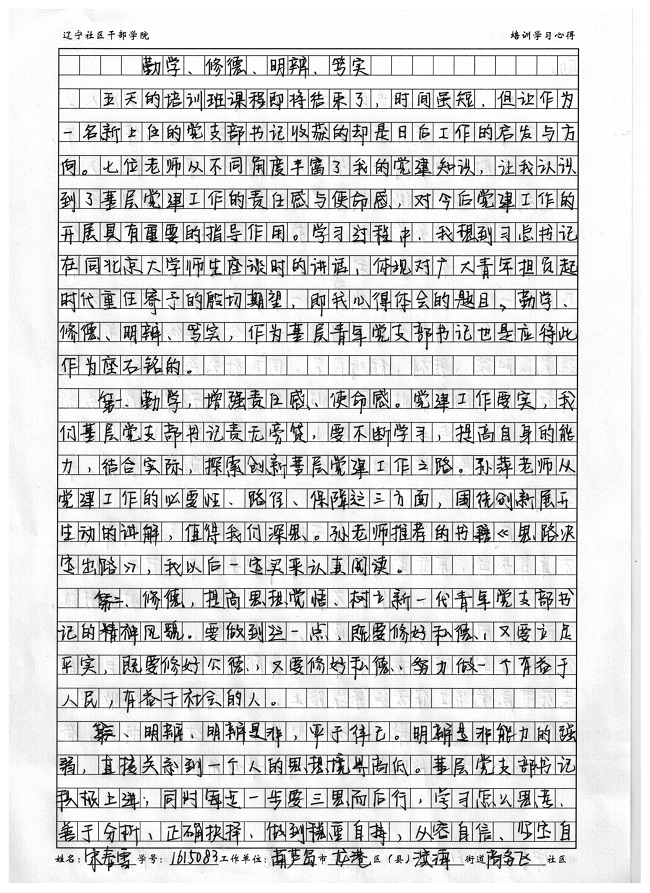 辽宁社区干部学院 培训学习心得
勤学、修德、明辨、笃实
五天的培训班课程即将结束了，时间虽短，但让作为
一名新上任的党支部书记收获的却是日后工作的启发与方
向。七位老师从不同角度丰富了我的党建知识，让我认识
到了基层党建工作的责任感与使命感，对今后党建工作的
开展具有重要的指导作用。学习过程中，我想到习总书记
在同北京大学师生座谈时的讲话，体现对广大青年担负起
时代重任寄予的殷切期望，即我心得体会的题目，勤学、
修德、明辨、笃实，作为基层青年党支部书记也是应将此
作为座右铭的。
第一、勤学，增强责任感、使命感。党建工作要实，我
们基层党支部书记责无旁贷，要不断学习，提高自身的能
力，结合实际，探索创新基层党建工作之路。孙萍老师从
党建工作的必要性、路径、保障这三方面，围绕创新展开
生动的讲解，值得我们深思。孙老师推荐的书籍《思路决
定出路》，我以后一定买来认真阅读。
第二、修德，提高思想觉悟、树立新一代青年党支部书
记的精神风貌。要做到这一点，既要修好私德，又要立足
平实，既要修好公德，又要修好私德、努力做一个有益于
人民，有益于社会的人。
第三、明辨、明辨是非，严于律己。明辨是非能力的强
弱，直接关系到一个人的思想境界高低。基层党支部书记
积极上进；同时每走一步要三思而后行，学习怎么思考、
善于分析、正确抉择、做到稳重自持，从容自信、坚定自
姓名：宋春雪 学号：1615083 工作单位：葫芦岛市 龙港 区（县） 街道 社区